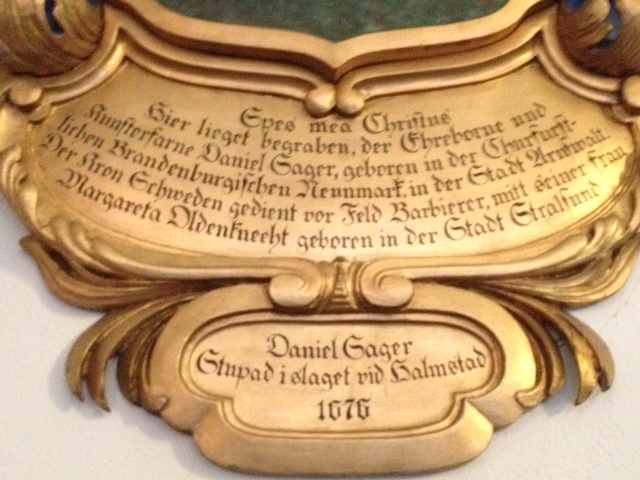 Spes mea Christus
Hier lieget begraben, der Ehreborne und
Kunsterfarne Daniel Sager, geboren in der Churfürst-
lichen Brandenburgischen Neunmark, in der Stadt Arntwalt.
Der Kron Schweden gedient vor Feld Barbierer, mitt seiner Frau
Margareta Oldenknecht geboren in der Stadt Stralsund
Daniel Sager
Stupad i slaget vid Halmstad
1676